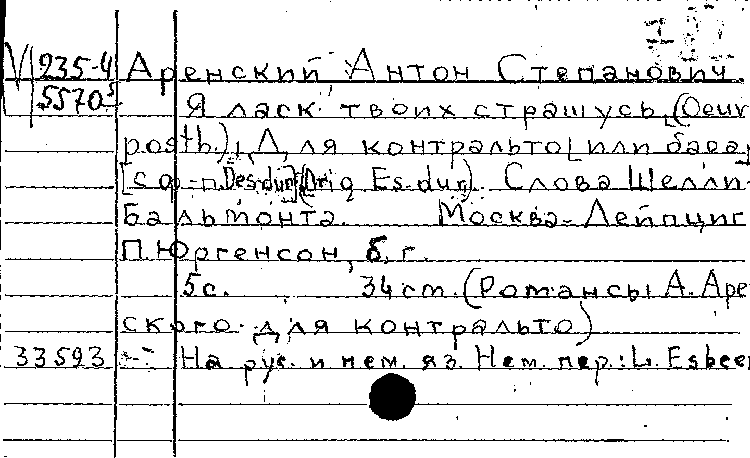 V 235-4 Аренский, Антон Степанович.
5570 Я ласк твоих страшусь, (Oeuv
posth.), Для контральто [или баса]
[с ор-п. Des-dur] (Orig Es-dur). Слова Шелли-
Бальмонта. Москва-Лейпциг
П. Юргенсон, б. г.
5 с. 34 cm. (Романсы А. Аре
ского для контральто)
33593 На рус. и нем. яз. Нем. пер.: L. Esbeer